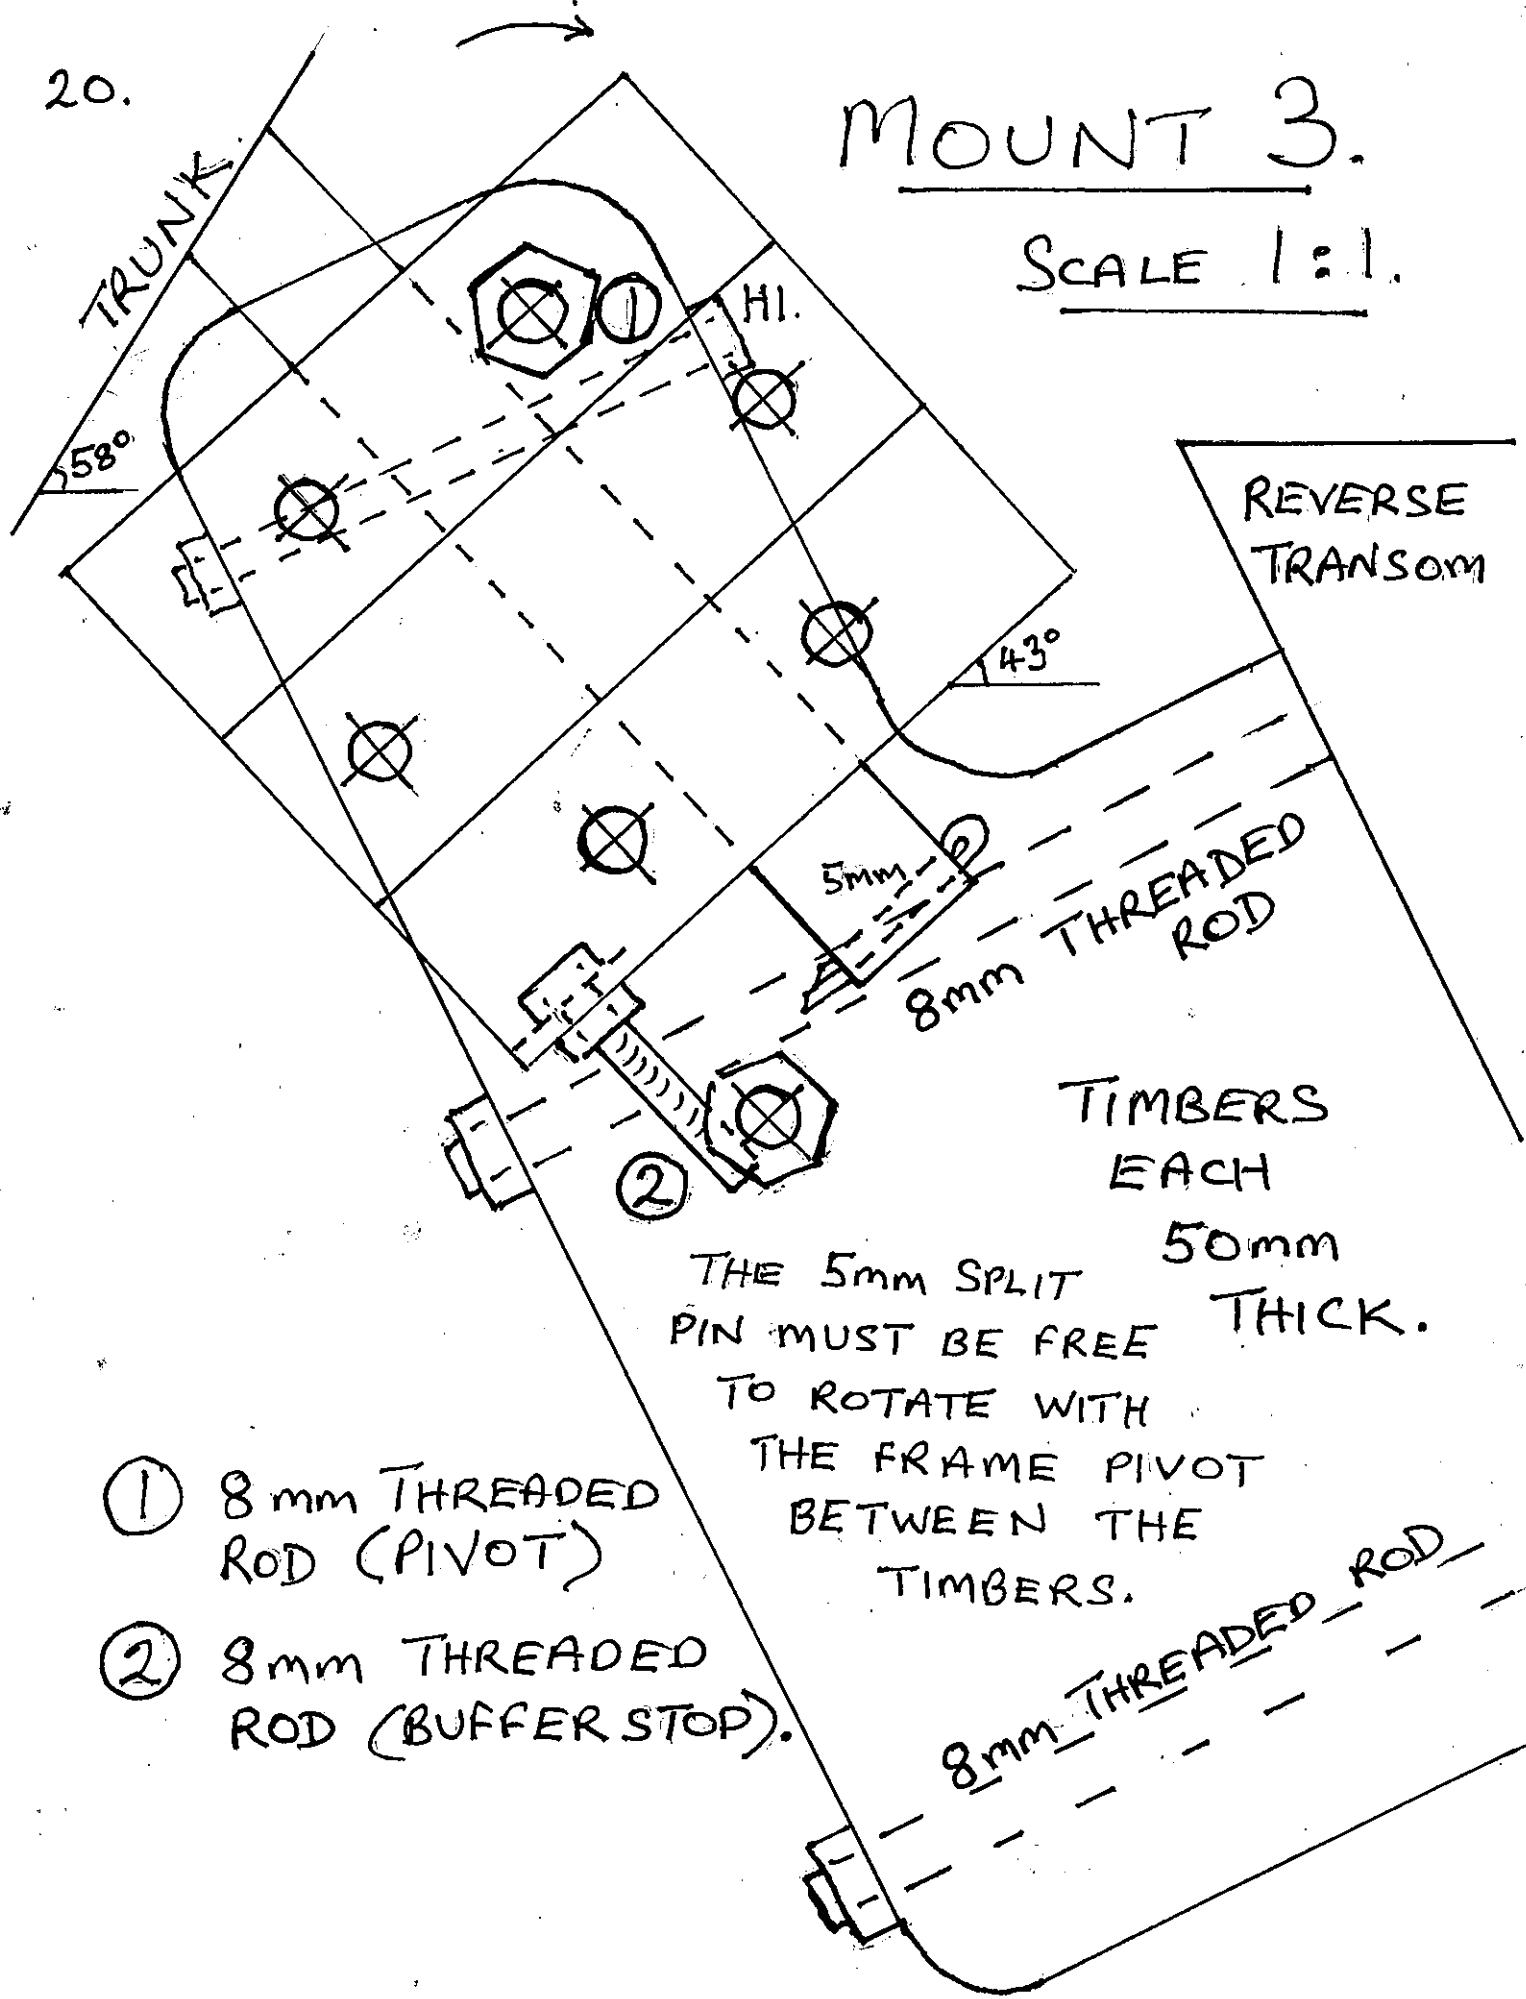 20.
MOUNT 3.
SCALE 1:1.
TRUNK.
1
H1.
58°
REVERSE
TRANSOM
43°
5mm
8mm THREADED
ROD
2
TIMBERS
EACH
50mm
THICK.
THE 5mm SPLIT
PIN MUST BE FREE
TO ROTATE WITH
THE FRAME PIVOT
BETWEEN THE
TIMBERS.
1 8mm THREADED
ROD (PIVOT)
2 8mm THREADED
ROD (BUFFER STOP).
8mm THREADED ROD